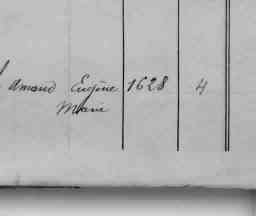 amand Eugène 1628 4
Marie